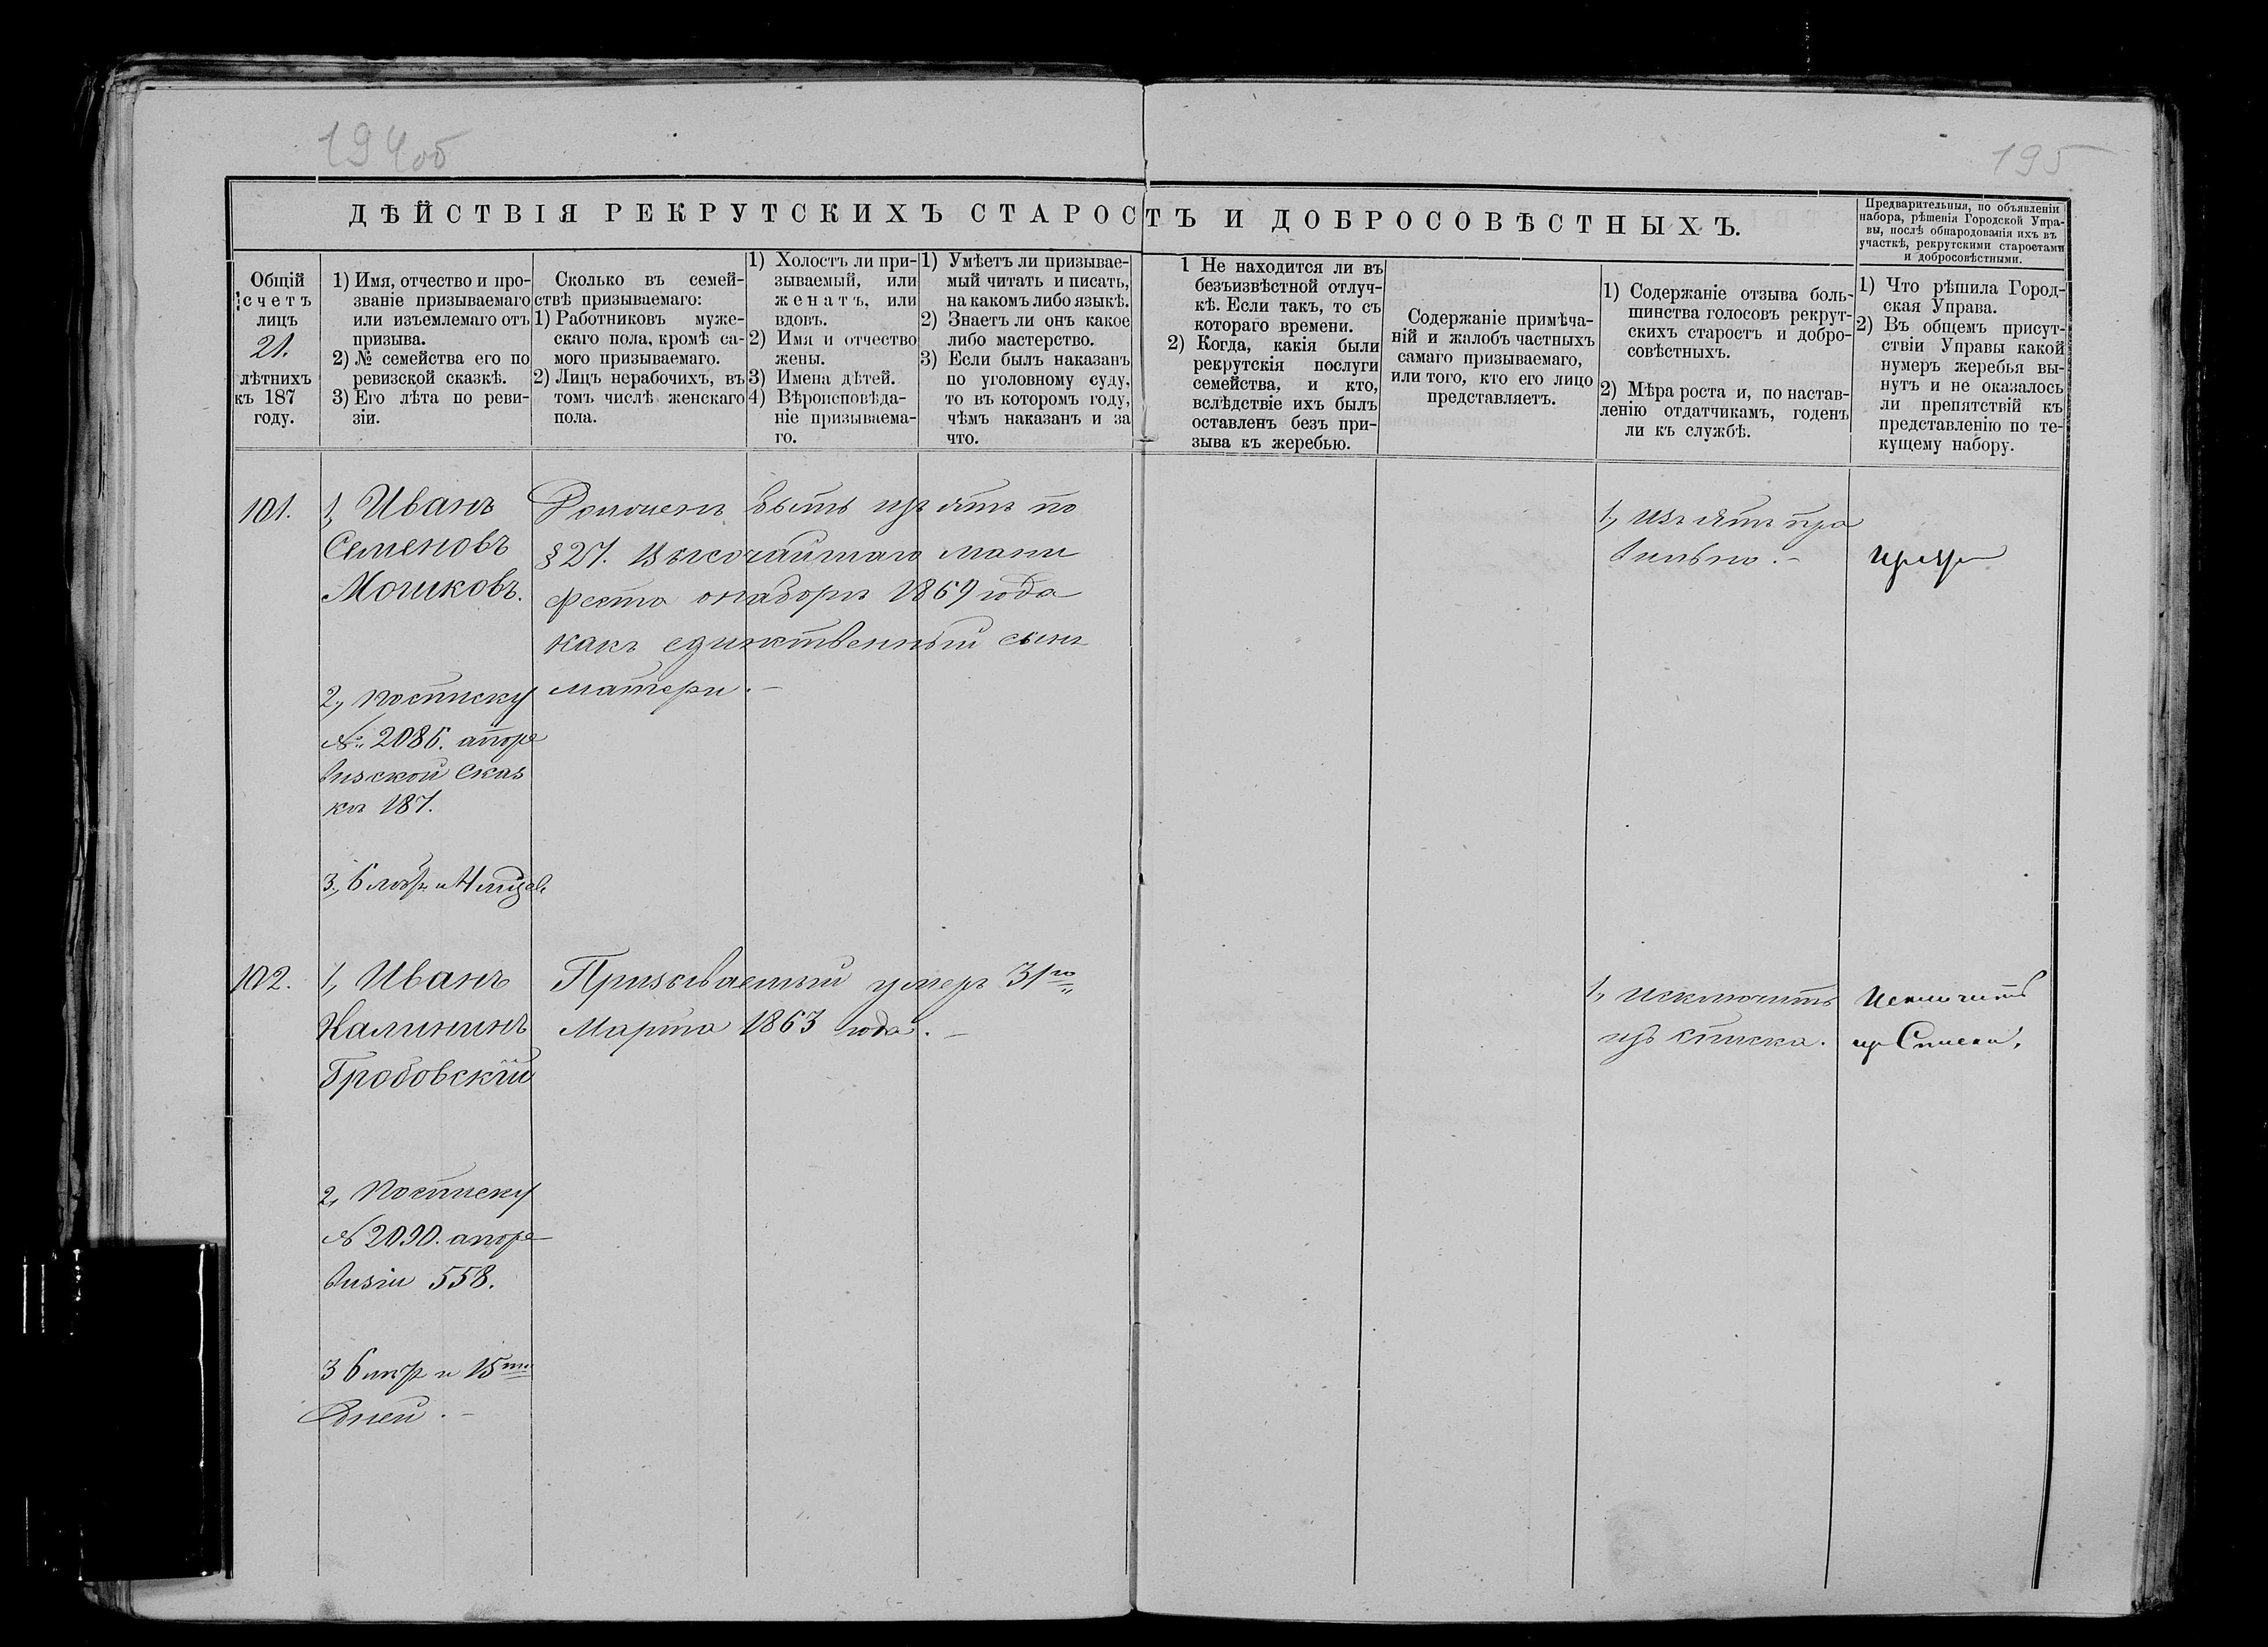 194об
195
ДѢЙСТВІЯ РЕКРУТСКИХЪ СТАРОСТЪ И ДОБРОСОВѢСТНЫХЪ.
Предварительныя, по объявленіи
набора, рѣшенія Городской Упра-
вы, послѣ обнародованія ихъ въ
участкѣ, рекрутскими старостами
и добросовѣстными.
Общій
счетъ
лицъ
21.
лѣтнихъ
къ 187
году.
1) Имя, отчество и про-
званіе призываемаго
или изъемлемаго отъ
призыва.
2) № семейства его по
ревизской сказкѣ.
3) Его лѣта по реви-
зіи.
Сколько въ семей-
ствѣ призываемаго:
1) Работниковъ муже-
скаго пола, кромѣ са-
мого призываемаго.
2) Лицъ нерабочихъ, въ
томъ числѣ женскаго
пола.
1) Холостъ ли при-
зываемый, или
женатъ, или
вдовъ.
2) Имя и отчество
жены.
3) Имена дѣтей.
4) Вѣроисповѣда-
ніе призываема-
го.
1) Умѣетъ ли призывае-
мый читать и писать,
на какомъ либо языкѣ.
2) Знаетъ ли онъ какое
либо мастерство.
3) Если былъ наказанъ
по уголовному суду,
то въ которомъ году,
чѣмъ наказанъ и за
что.
1 Не находится ли въ
безъизвѣстной отлуч-
кѣ. Если такъ, то съ
котораго времени.
2) Когда, какія были
рекрутскія послуги
семейства, и кто,
вслѣдствіе ихъ былъ
оставленъ безъ при-
зыва къ жеребью.
Содержаніе примѣча-
ній и жалобъ частныхъ
самаго призываемаго,
или того, кто его лицо
представляетъ.
1) Содержаніе отзыва боль-
шинства голосовъ рекрут-
скихъ старостъ и добро-
совѣстныхъ.
2) Мѣра роста и, по настав-
ленію отдатчикамъ, годенъ
ли къ службѣ.
1) Что рѣшила Город-
ская Управа.
2) Въ общемъ присут-
ствіи Управы какой
нумеръ жеребья вы-
нутъ и не оказалось
ли препятствій къ
представленію по те-
кущему набору.
101.
1, Иванъ
Семеновъ
Мошковъ.
2, по списку
№ 2086. а по ре
визской сказ
кѣ 187.
3, 6 лѣтъ и 4 мѣсяц
Долженъ быть изъятъ по
§ 27. Высочайшаго мани
феста о наборѣ 1869 года
какъ единственный сынъ
матери. –
1, Изъятъ пра
вильно. –
102.
1, Иванъ
Калининъ
Гробовскій
2, по списку
№ 2090. а по ре
визіи 558.
3 6 лѣтъ и 15ти
дней. –
Призываемый умеръ 31го
Марта 1863 года. –
1, Исключить
изъ списка.
Исключить
изъ Списка.